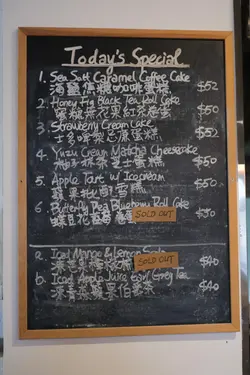 Today's Special
1. Sea Salt Caramel Coffee Cake
海鹽焦糖咖啡蛋糕 $52
2. Honey Fig Black Tea Roll Cake
蜜糖無花果紅茶卷蛋 $50
3. Strawberry Cream Cake
士多啤梨忌廉蛋糕 $52
4. Yuzu Cream Matcha Cheesecake
柚子抹茶芝士蛋糕 $50
5. Apple Tart w/ Icecream
蘋果批配雪糕 $50
6. Butterfly Pea Blueberry Roll Cake
SOLD OUT $50
a. Iced Mango & Lemon Soda
SOLD OUT $40
b. Iced Apple Juice Earl Grey Tea
凍青蘋果伯爵茶 $40